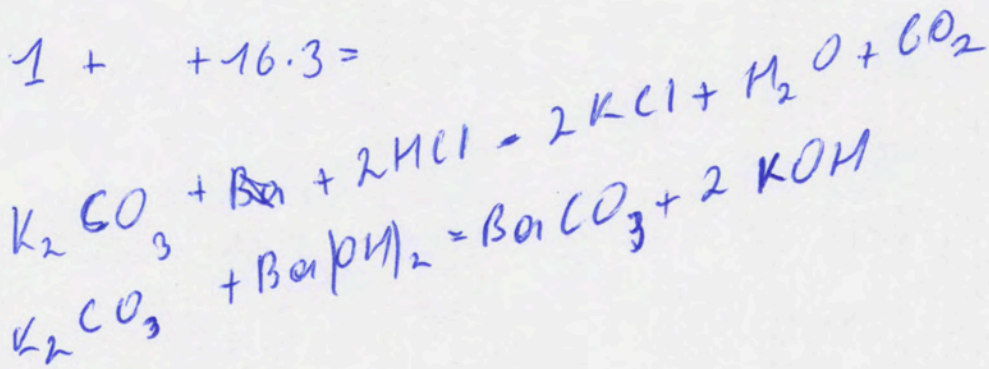 1 + +16·3=
K₂CO₃ + + 2HCl - 2KCl + H₂O + CO₂
K₂CO₃ + Ba(OH)₂ = BaCO₃ + 2 KOH